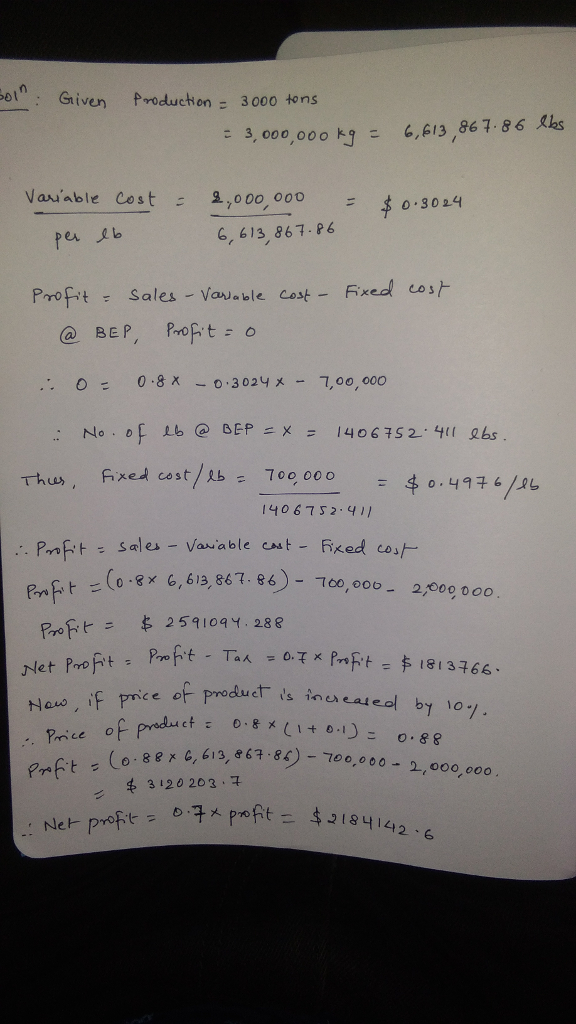 Soln : Given Production = 3000 tons
= 3,000,000 kg = 6,613,867.86 lbs
Variable Cost = 2,000,000 = $ 0.3024
per lb 6,613,867.86
Profit = Sales - Variable Cost - Fixed cost
@ BEP, Profit = 0
∴ 0 = 0.8x - 0.3024x - 7,00,000
∴ No. of lb @ BEP = x = 1406752.411 lbs.
Thus, Fixed cost/lb = 700,000 = $ 0.4976/lb
1406752.411
∴ Profit = sales - Variable cost - Fixed cost
Profit = (0.8 × 6,613,867.86) - 700,000 - 2,000,000.
Profit = $ 2591094.288
Net Profit = Profit - Tax = 0.7 × Profit = $ 1813766.
Now, if price of product is increased by 10%.
∴ Price of product = 0.8 × (1 + 0.1) = 0.88
Profit = (0.88 × 6,613,867.86) - 700,000 - 2,000,000.
= $ 3120203.7
∴ Net profit = 0.7 × profit = $ 2184142.6